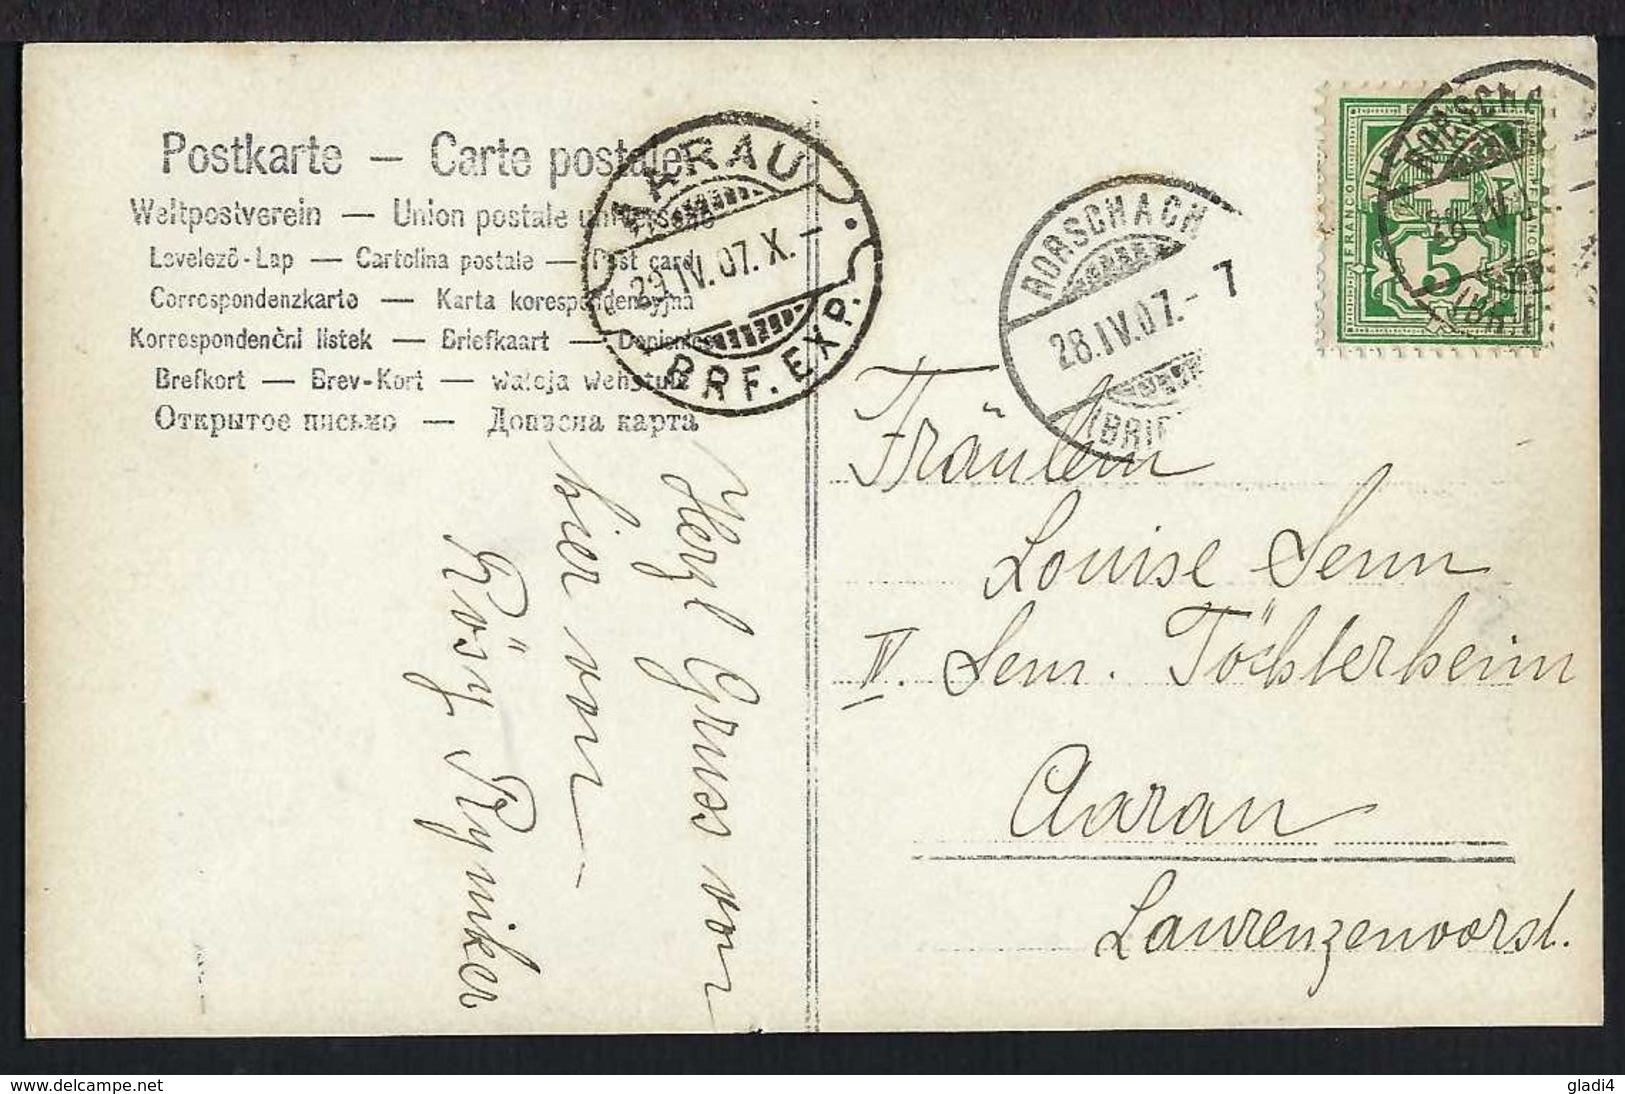 Postkarte — Carte postale
Weltpostverein — Union postale universelle
Levelező-Lap — Cartolina postale — Post card
Correspondenzkarte — Karta korespondencyjna
Korrespondenční listek — Briefkaart — Dopisnice
Brefkort — Brev-Kort —
Открытое письмо — Дописна карта
AARAU
29.IV.07.X.–
BRF. EXP.
RORSCHACH
28.IV.07.– 7
(BRIEF
RORSCHACH
28.IV.
(BR.
FRANCO
HELVETIA
FRANCO
5
Herzl Gruss von
hier von
Rösy Ryniker
Fräulein
Louise Senn
IV. Sem. Töchterheim
Aarau
Laurenzenvorst.
www.delcampe.net
gladi4